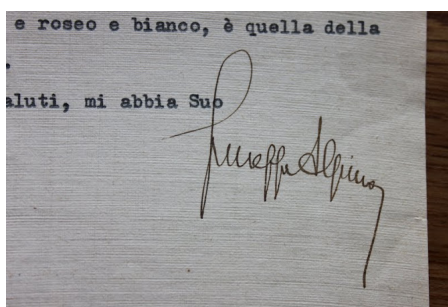 e roseo e bianco, è quella della
.
aluti, mi abbia Suo
Giuseppe Alpino